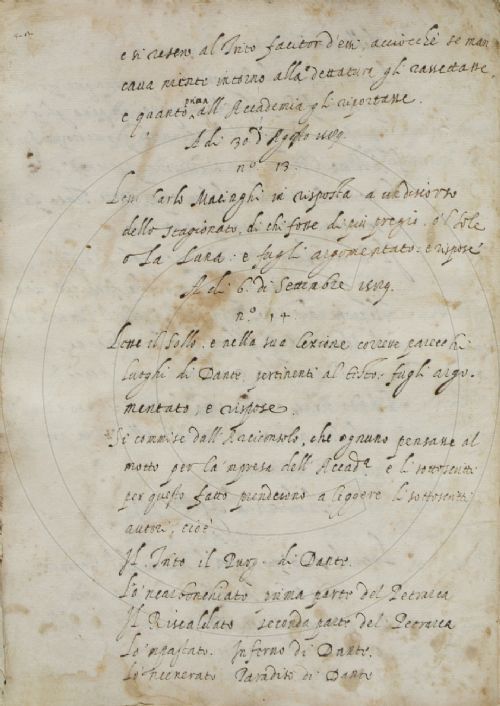 e si resero al Trito facitor d'essi, acciocchè se man
cava niente intorno alla dettatura gli rassettasse
e quanto prima all'Accademia gli riportasse.
A di 30 d'Agosto 1589.
n.º 13.
Lesse Carlo Macinghi in risposta a un discorso
dello Stagionato, di chi fosse di più pregio, o 'l Sole
o la Luna: e fugli argomentato: e rispose
A di 6. di Settembre 1589.
n.º 14.
Lesse il Sollo: e nella sua lezione corresse parecchi
luoghi di Dante pertinenti al testo: fugli argu
mentato, e rispose.
Si commise dall'Arciconsolo, che ognuno pensasse al
motto per la impresa dell'Accad.ª e li sottoscritti
per questo fatto prendessono a leggere li sottoscritti
autori, cioè
Il Trito il Purg. di Dante.
Lo 'ncarbonchiato prima parte del Petrarca
Il Riscaldato seconda parte del Petrarca
Lo 'mpastato. Inferno di Dante.
Lo 'ncenerato Paradiso di Dante